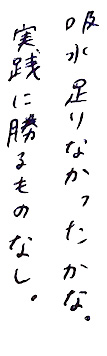 吸水足りなかったかな。
実践に勝るものなし。